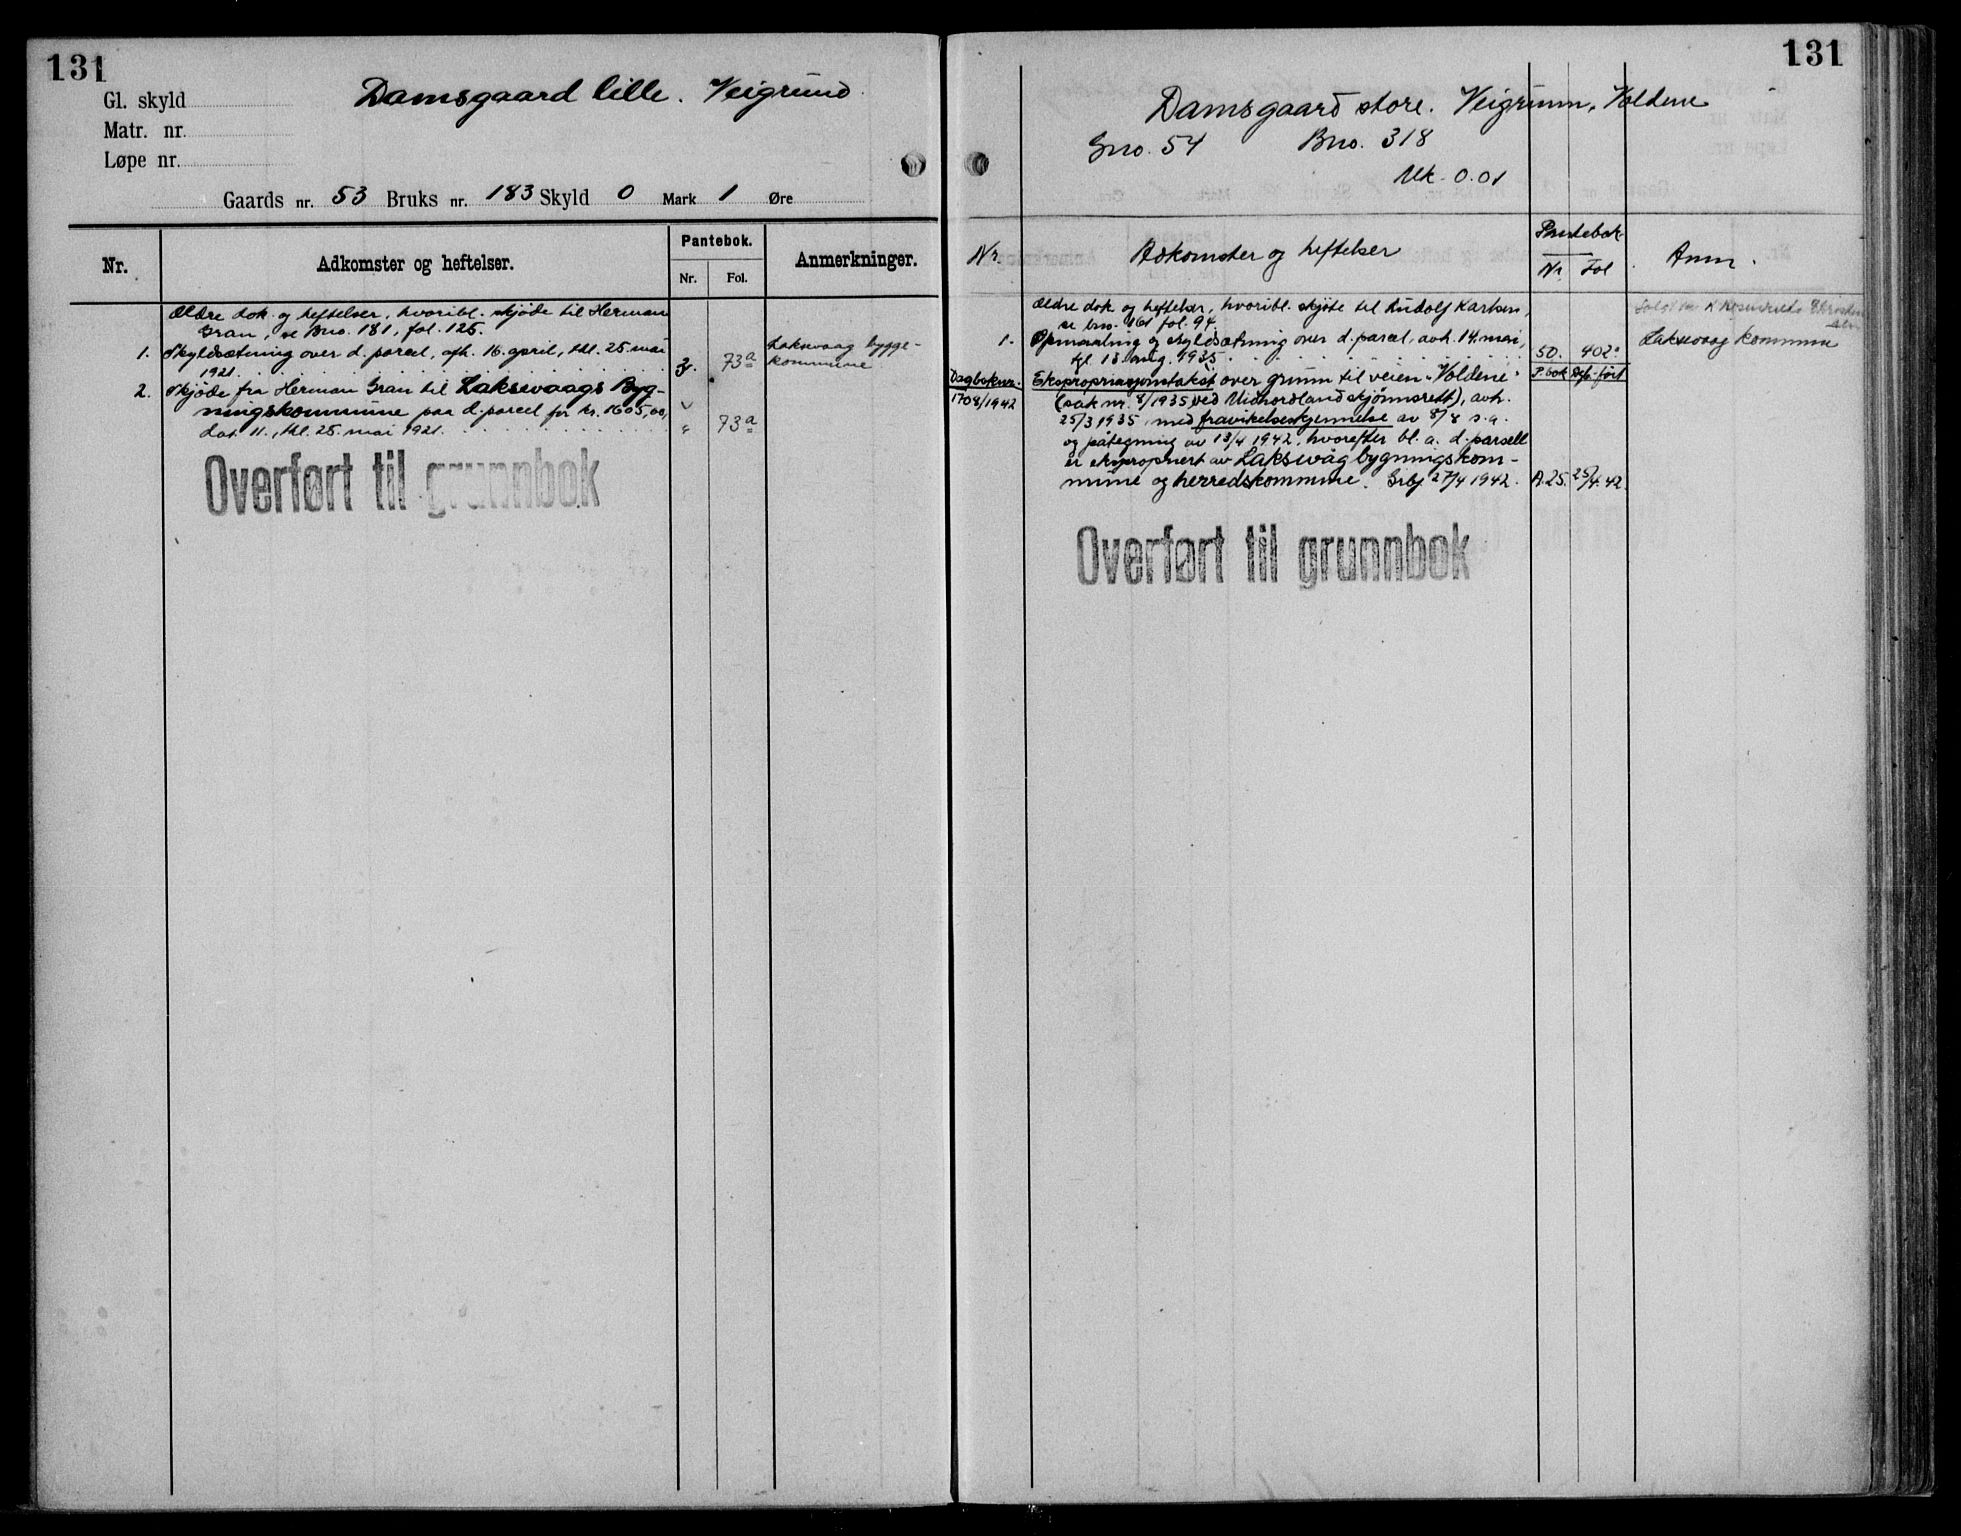 131
Gl. skyld
Damsgaard lille. Veigrund
Matr. nr.
Løpe nr.
Gaards nr. 53 Bruks nr. 183 Skyld 0 Mark 1 Øre
Nr. Adkomster og heftelser. Pantebok. Anmerkninger.
Nr. Fol.
Ældre dok. og heftelser, hvoribl. skjøde til Herman
Gran, se Bno. 181, fol. 125.
1. Skyldsætning over d. parcel, afh. 16. april, thl. 25. mai
1921. 73a
Laksevaag bygge-
kommune
2. Skjøde fra Herman Gran til Laksevaags Byg-
ningskommune paa d. parcel for kr. 1605,00,
dat. 11., thl. 25. mai 1921. " 73a
Overført til grunnbok
131
Damsgaard store. Veigrunn, Voldene
Gno. 54 Bno. 318
Mk. 0.01
Nr. Adkomster og heftelser Pantebok Anm.
Nr. Fol
Ældre dok. og heftelser, hvoribl. skjøte til Rudolf Karlsen,
se bno. 161 fol. 94.
1. Opmaaling og skyldsætning over d. parcel, avh. 14. mai,
tgl. 13. aug. 1935. 50. 402a
Laksevaag kommune
Dagboknr. Ekspropriasjonstakst over grunn til veien "Voldene" P.bok Dgb.ført
1708/1942 (sak nr. 8/1935 ved Midhordland skjønnsrett), avh.
25/3 1935, med fravikelseskjennelse av 8/8 s.a.
og påtegning av 13/4 1942, hvorefter bl. a. d. parsell
er ekspropriert av Laksevåg bygningskom-
mune og herredskommune. Grbf 27/4 1942. A.25. 25/4.42.
Overført til grunnbok